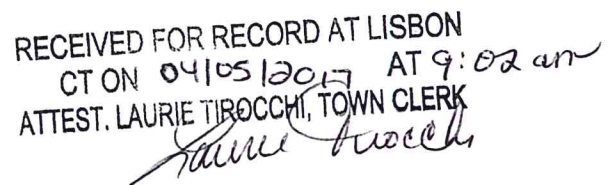 RECEIVED FOR RECORD AT LISBON
CT ON 04/05/2017 AT 9:02 am
ATTEST. LAURIE TIROCCHI, TOWN CLERK
Laurie Tirocchi